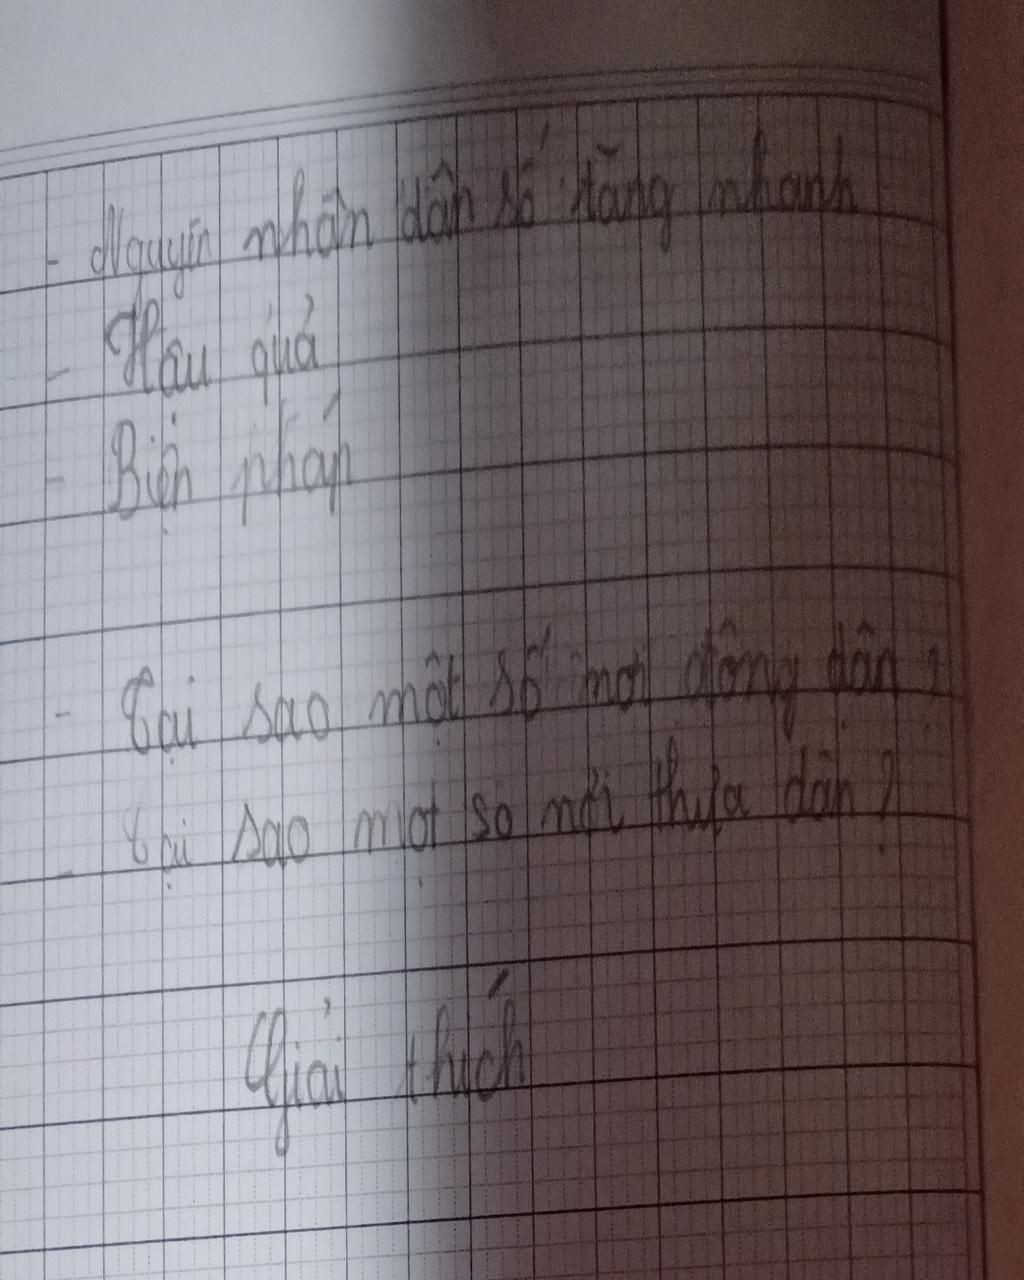 - Nguyên nhân dân số tăng nhanh
- Hậu quả
- Biện pháp
- Tại sao một số nơi đông dân ?
- Tại sao một số nơi thưa dân ?
Giải thích